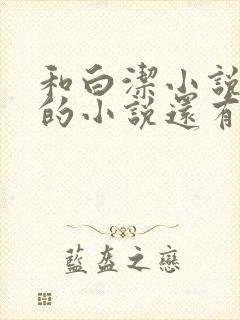 和白潔小說
的小說還有
藍盔之戀